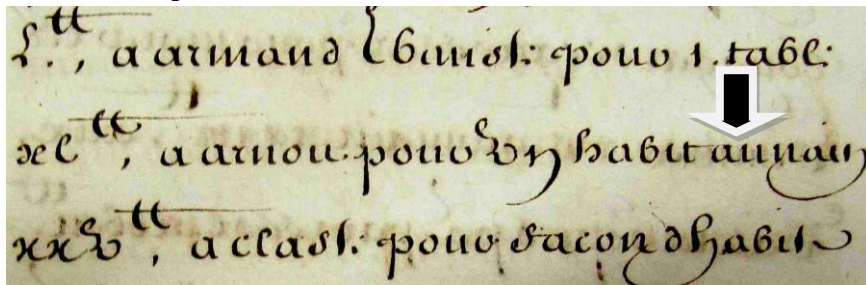 L.tt, a armand Ebenist: pour 1. tabl:
xl tt, a arnou pour vn habit aunain
xxv tt, a clast: pour facon dhabit